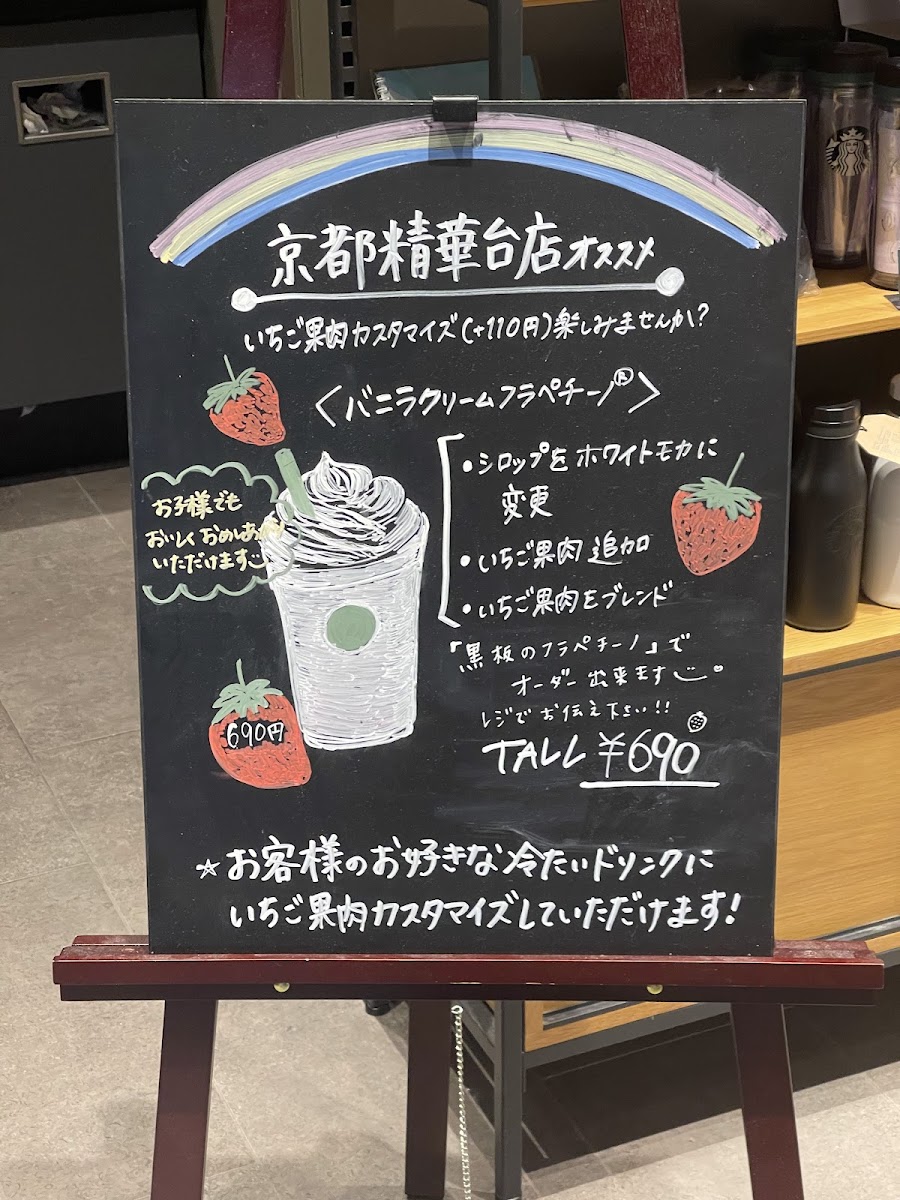 京都精華台店オススメ
いちご果肉カスタマイズ(+110円)楽しみませんか?
〈バニラクリームフラペチーノ®〉
・シロップをホワイトモカに
変更
・いちご果肉追加
・いちご果肉をブレンド
お子様でも
おいしくおめしあがり
いただけます
『黒板のフラペチーノ』で
オーダー出来ます
レジでお伝え下さい!!
690円
TALL ¥690
☆お客様のお好きな冷たいドリンクに
いちご果肉カスタマイズしていただけます!